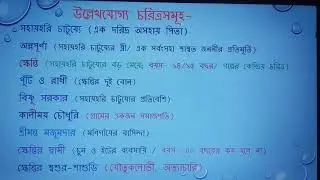 উল্লেখযোগ্য চরিত্রসমূহ-
সহায়হরি চাটুয্যে (এক দরিদ্র অসহায় পিতা)
অন্নপূর্ণা (সহায়হরি চাটুয্যের স্ত্রী/ এক সর্বংসহা শাশ্বত জননীর প্রতিমূর্তি)
ক্ষেন্তি (সহায়হরি চাটুয্যের বড় মেয়ে; বয়স -১৪/১৫ বছর/ গল্পের কেন্দ্রিয় চরিত্র)
পুঁটি ও রাধী (ক্ষেন্তির দুই বোন)
বিষ্ণু সরকার (সহায়হরি চাটুয্যের প্রতিবেশি)
কালীময় চৌধুরি (গ্রামের একজন সমাজপতি)
শ্রীমন্ত মজুমদার (মণিগাঁয়ের বাসিন্দা)
ক্ষেন্তির স্বামী (চুন ও ইটের ব্যবসায়ি / বয়স ৪০ বছরের কম হবে না)
ক্ষেন্তির শ্বশুর-শাশুড়ি (যৌতুকলোভী, অত্যাচারি)